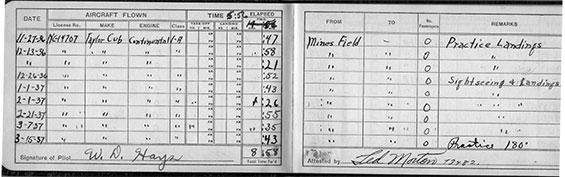 AIRCRAFT FLOWN TIME ELAPSED FROM TO No. Passengers REMARKS
DATE License No. MAKE ENGINE Class TAKE OFF LANDING
11-27-36 NC19707 Taylor Cub Continental 1-A :47 Mines Field - 0 Practice Landings
12-13-36 " " " " :58 " " 0 " "
" " " " " :21 " " 0 " "
12-26-36 " " " " :52 " " 0 Sightseeing & Landings
1-1-37 " " " " :43 " " 0 " "
2-1-37 " " " " 1:26 " " 0 " "
2-21-37 " " " " :55 " " 0 " "
3-7-37 " " " " :35 " " 0
3-15-37 " " " " :43 " " 0 Practice 180°
Signature of Pilot W. D. Hays 8:58 Total Time f'd Attested by Ted Morton 13482.